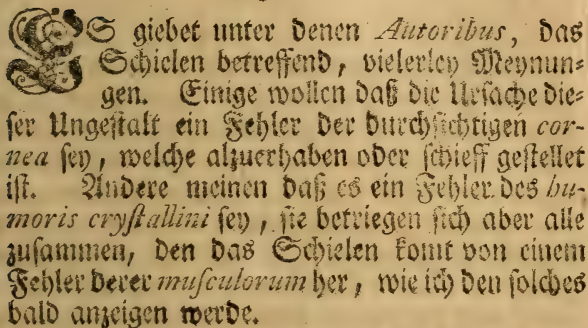 ES giebet unter denen Autoribus, das
Schielen betreffend, vielerley Meynun-
gen. Einige wollen daß die Ursache die-
ser Ungestalt ein Fehler der durchsichtigen cor-
nea sey, welche alzuerhaben oder schieff gestellet
ist. Andere meinen daß es ein Fehler des hu-
moris crystallini sey, sie betriegen sich aber alle
zusammen, den das Schielen komt von einem
Fehler derer musculorum her, wie ich den solches
bald anzeigen werde.